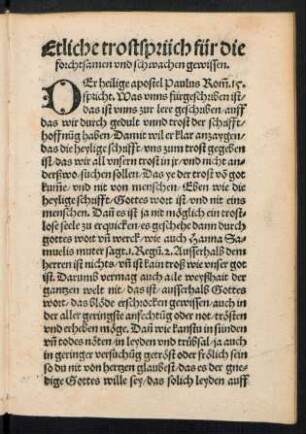 Etliche trostsprüch für die
forchtsamen vnd schwachen gewissen.
DEr heilige apostel Paulus Rom̃.15.
spricht. Was vnns fürgeschriben ist/
das ist vnns zur lere geschriben/auff
das wir durch gedult vnnd trost der schrifft/
hoffnũg haben/Damit wil er klar anzaygen/
das die heylige schrifft/vns zum trost gegeben
ist/das wir all vnsern trost in jr/vnd nicht an/
derßwo/suchen sollen/Das ye der trost võ got
kum̃e/vnd nit von menschen/Eben wie die
heylige schrifft/Gottes wort ist/vnd nit eins
menschen. Dañ es ist ja nit möglich ein trost/
lose seele zu erquicken/es geschehe dann durch
gottes wort vñ werck/wie auch Hanna Sa/
muelis muter sagt.1.Regũ.2.Ausserhalb dem
herren ist nichts/vñ ist kain troß wie vnser got
ist. Darumb vermag auch alle weyßhait der
gantzen welt nit/das ist/ausserhalb Gottes
wort/das blöde erschrocken gewissen/auch in
der aller geringste anfechtũg oder not/trösten
vnd erheben möge. Dañ wie kanstu in sunden
vñ todes nöten/in leyden vnd trübsal/ja auch
in geringer versuchũg getröst oder frölich sein
so du nit von hertzen glaubest/das es der gne/
dige Gottes wille sey/das solich leyden auff